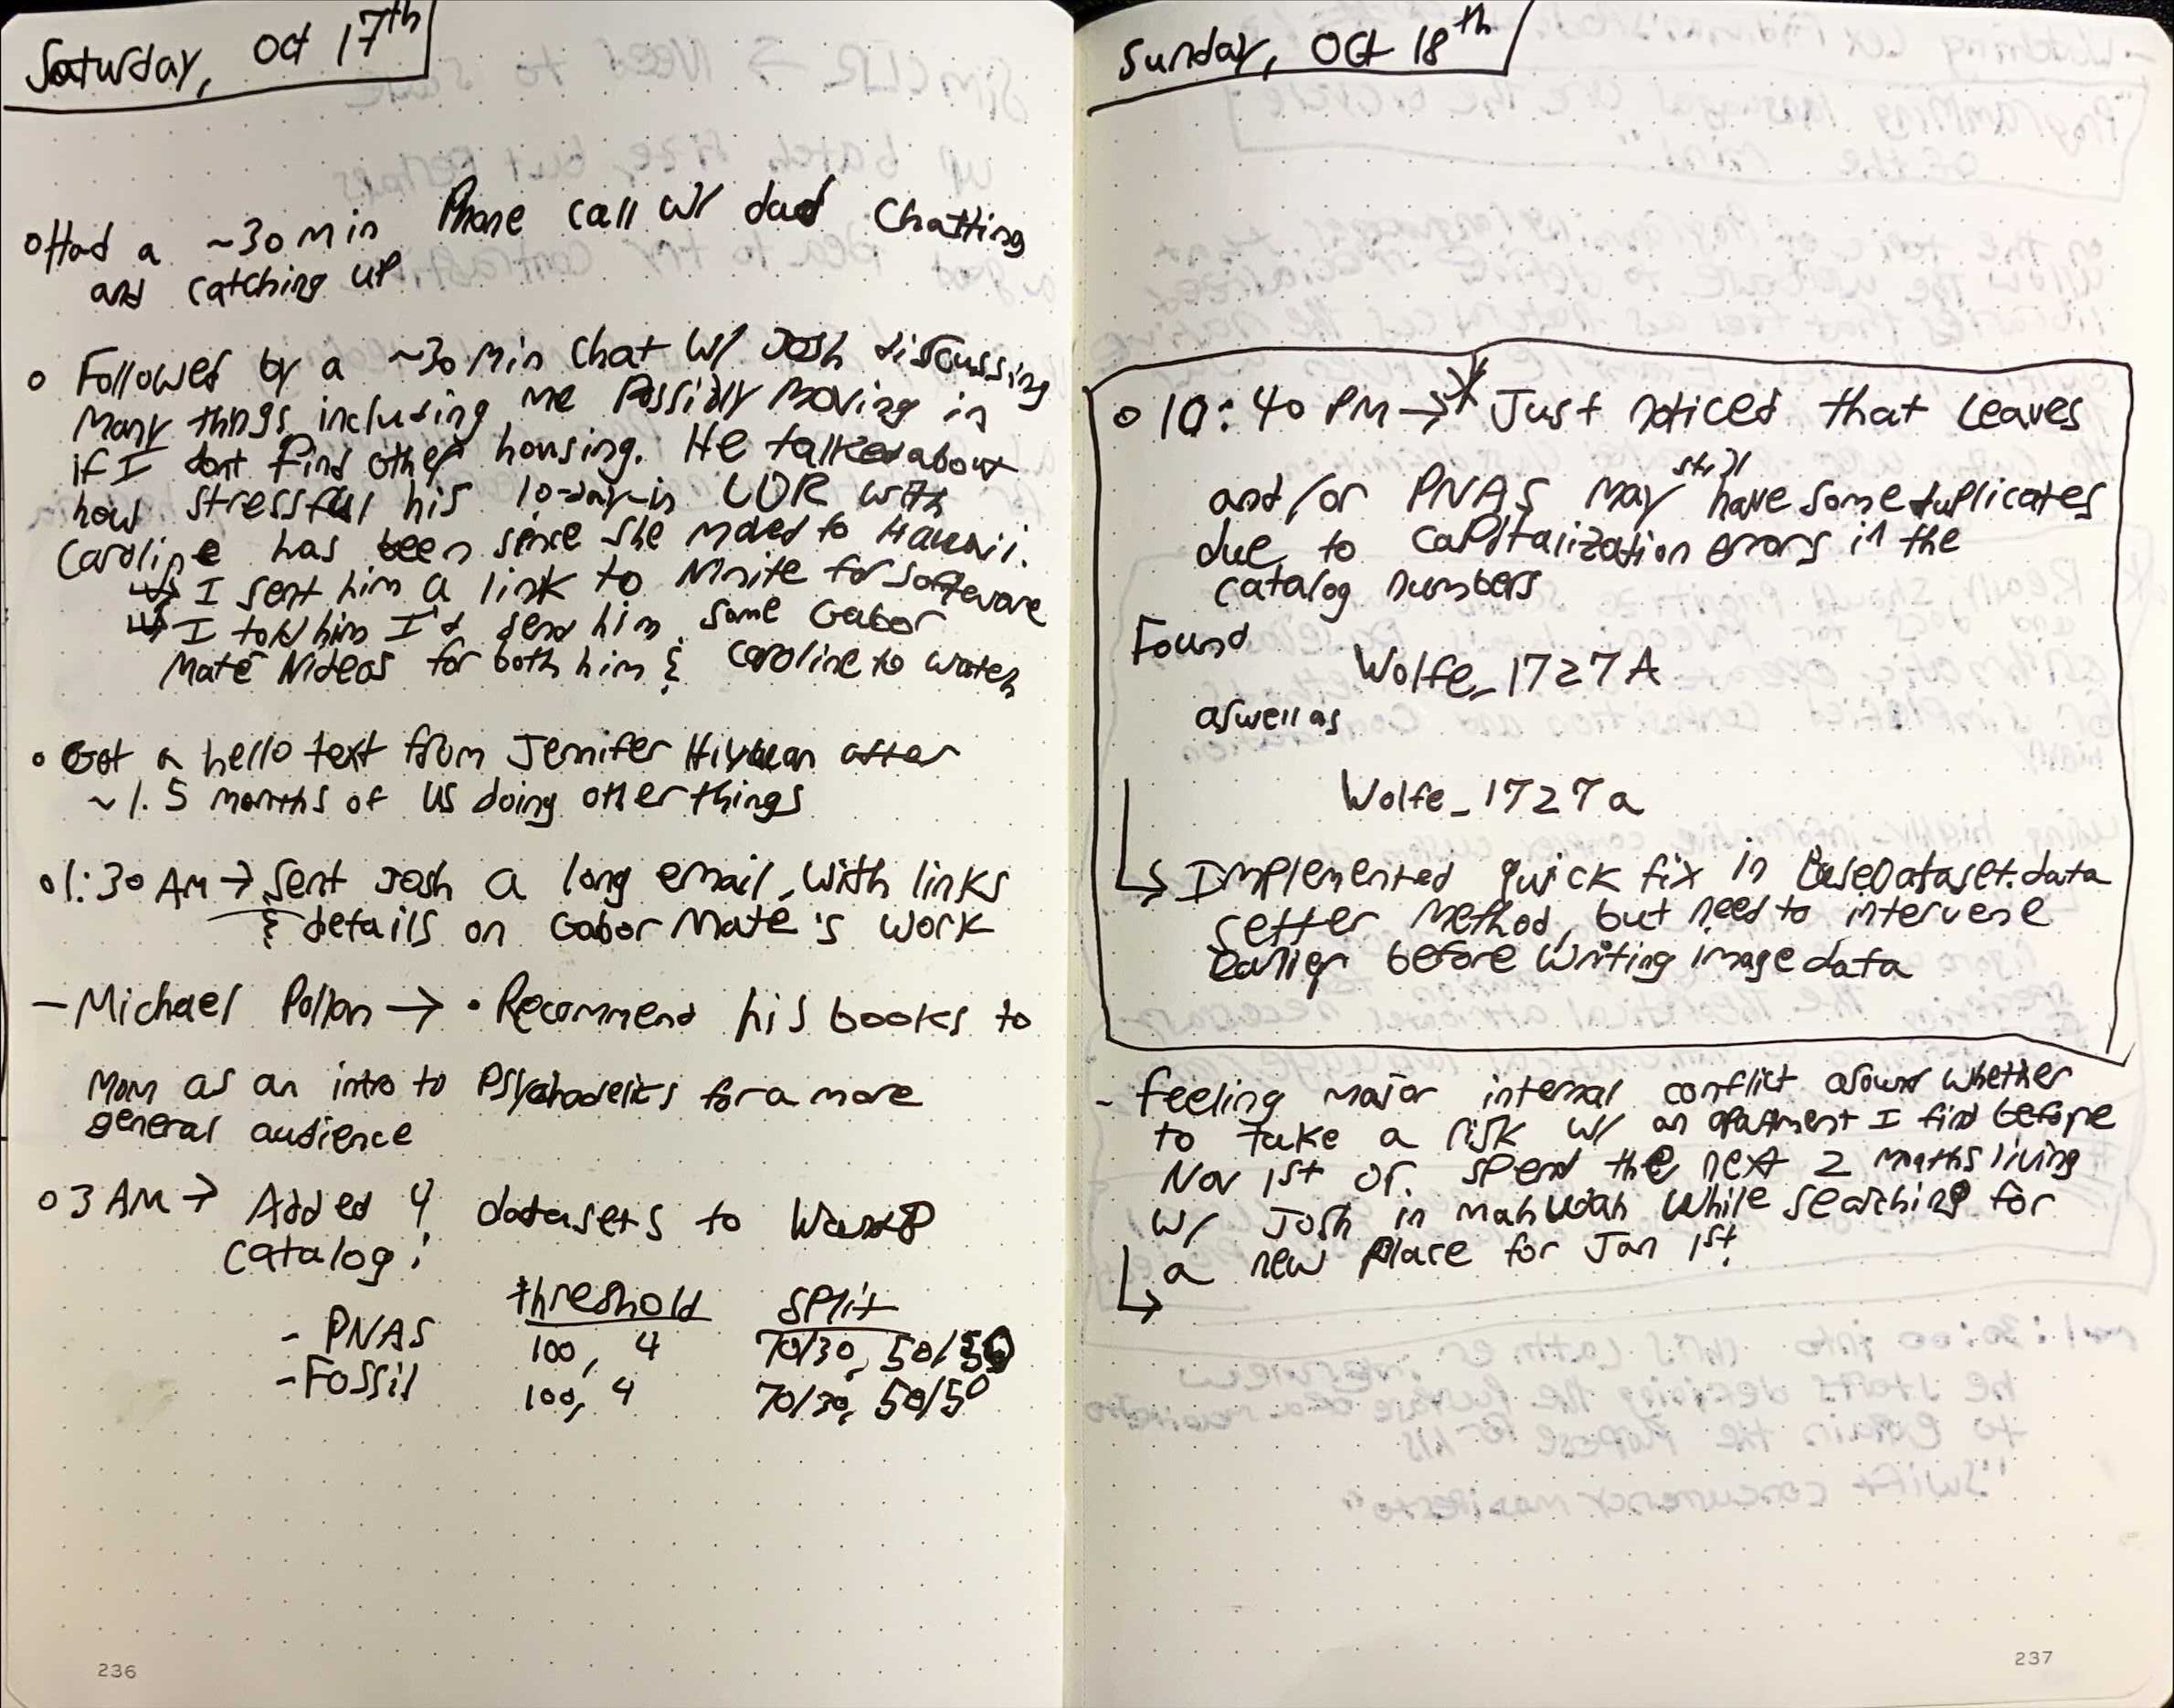 Saturday, Oct 17th
o Had a ~30 min Phone call w/ dad Chatting
and catching up
o Followed by a ~30 min chat w/ Josh discussing
Many things including me Possibly Moving in
if I dont find other housing. He talked about
how stressful his 10-day-in LDR with
Caroline has been since she moved to Hawaii.
↳ I sent him a link to Ninite for Software
↳ I told him I'd send him some Gabor
Maté Videos for both him & Caroline to watch
• Got a hello text from Jennifer after
~1.5 months of us doing other things
o 1:30 AM → Sent Josh a long email, with links
& details on Gabor Maté's work
— Michael Pollan → • Recommend his books to
Mom as an intro to Psychadelics for a more
general audience
o 3 AM → Added 4 datasets to WandB
catalog:
threshold split
- PNAS 100, 4 70/30, 50/50
- Fossil 100, 4 70/30, 50/50
236
Sunday, Oct 18th
o 10:40 PM → * Just noticed that Leaves
and/or PNAS may still have some duplicates
due to capitalization errors in the
catalog numbers
Found
Wolfe_1727A
as well as
Wolfe_1727a
↳ Implemented quick fix in BaseDataset.data
setter method, but need to intervene
Earlier before writing image data
- feeling major internal conflict around whether
to take a risk w/ an apartment I find before
Nov 1st or. spend the next 2 months living
w/ Josh in mahwah while searching for
a new place for Jan 1st.
↳
237